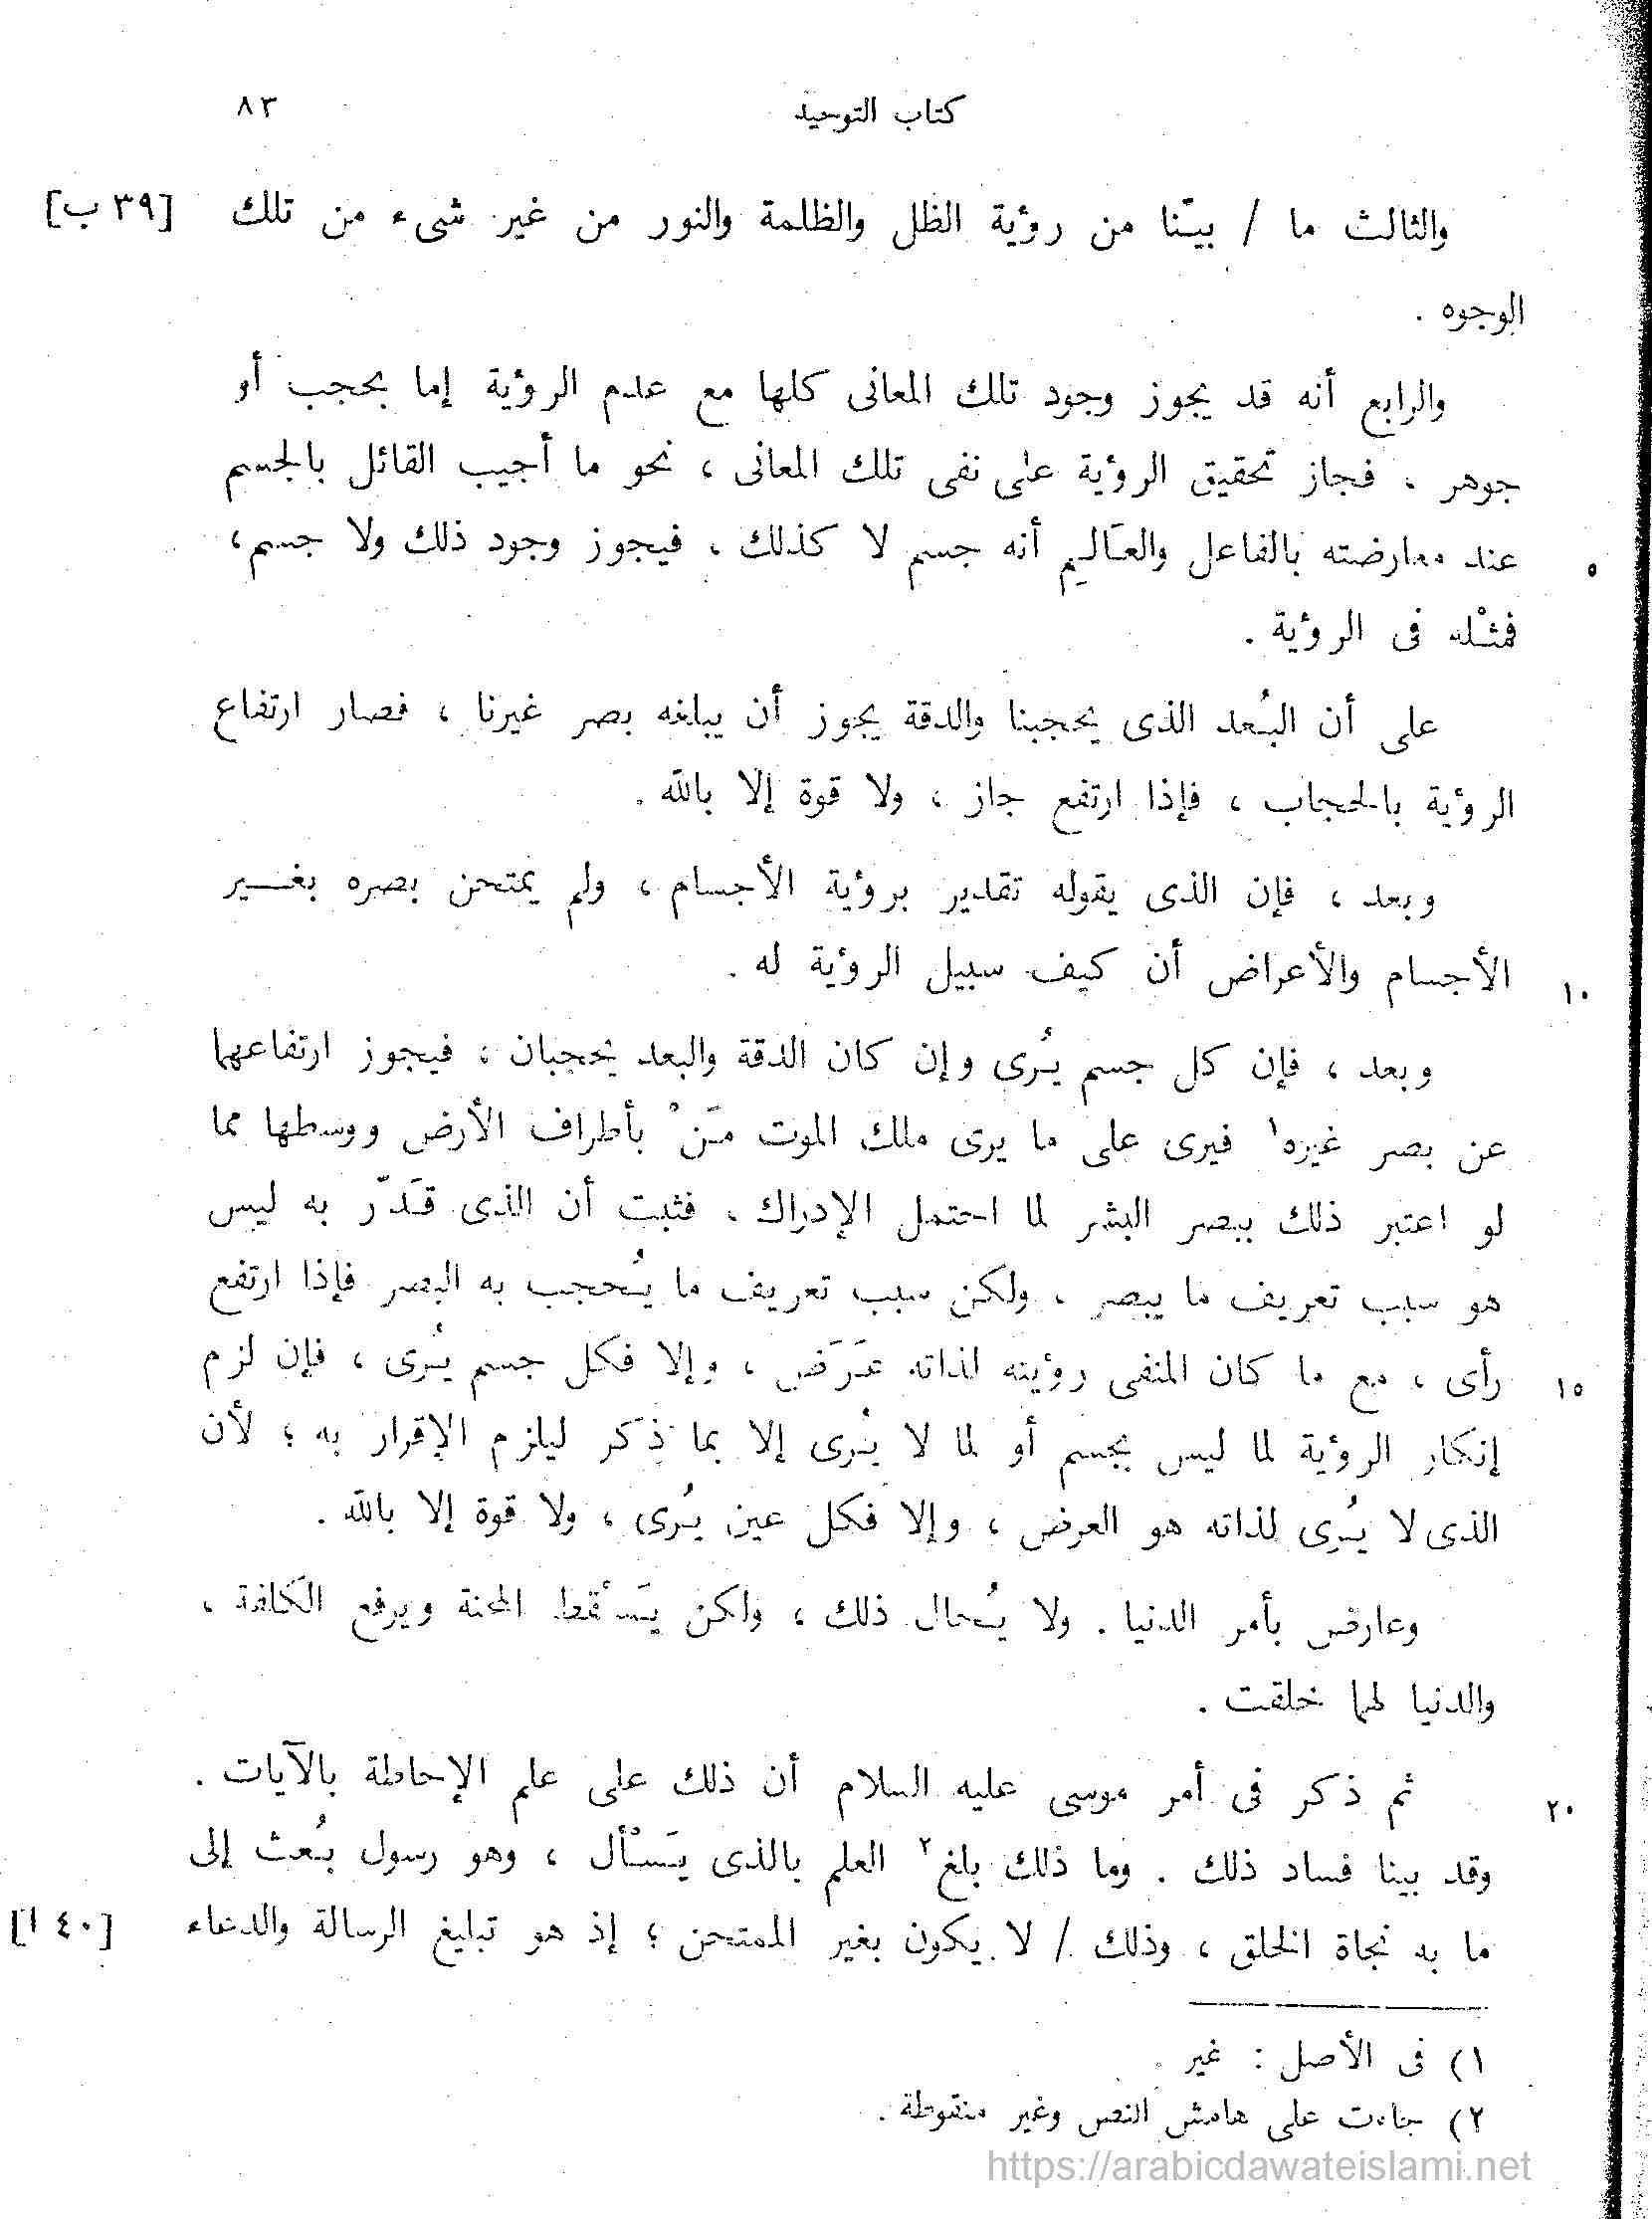 كتاب التوحيد ٨٣
والثالث ما / بيّنا من رؤية الظل والظلمة والنور من غير شىء من تلك [٣٩ ب]
الوجوه .
والرابع أنه قد يجوز وجود تلك المعانى كلها مع عدم الرؤية إما بحجب أو
جوهر ، فجاز تحقيق الرؤية على نفى تلك المعانى ، نحو ما أجيب القائل بالجسم
عند معارضته بالفاعل والعَالِم أنه جسم لا كذلك ، فيجوز وجود ذلك ولا جسم، ٥
فمثْله فى الرؤية .
على أن البُعد الذى يحجبنا والدقة يجوز أن يبلغه بصر غيرنا ، فصار ارتفاع
الرؤية بالحجاب ، فإذا ارتفع جاز ، ولا قوة إلا بالله .
وبعد ، فإن الذى يقوله تقدير برؤية الأجسام ، ولم يمتحن بصره بغير
الأجسام والأعراض أن كيف سبيل الرؤية له . ١٠
وبعد ، فإن كل جسم يُرى وإن كان الدقة والبعد يحجبان ، فيجوز ارتفاعهما
عن بصر غيره١ فيرى على ما يرى ملك الموت مَنْ بأطراف الأرض ووسطها مما
لو اعتبر ذلك ببصر البشر لما احتمل الإدراك ، فثبت أن الذى قَدّر به ليس
هو سبب تعريف ما يبصر ، ولكن سبب تعريف ما يُحجب به البصر فإذا ارتفع
رأى ، مع ما كان المنفى رؤيته لذاته عَرَض ، وإلا فكل جسم يُرى ، فإن لزم ١٥
إنكار الرؤية لما ليس بجسم أو لما لا يُرى إلا بما ذكر ليلزم الإقرار به ؛ لأن
الذى لا يُرى لذاته هو العرض ، وإلا فكل عين يُرى ، ولا قوة إلا بالله .
وعارض بأمر الدنيا . ولا يُحال ذلك ، ولكن يَسْقط المحنة ويرفع الكلفة ،
والدنيا لهما خلقت .
ثم ذكر فى أمر موسى عليه السلام أن ذلك على علم الإحاطة بالآيات . ٢٠
وقد بينا فساد ذلك . وما ذلك بلغ٢ العلم بالذى يَسْأل ، وهو رسول بُعث إلى
ما به نجاة الخلق ، وذلك / لا يكون بغير الممتحن ؛ إذ هو تبليغ الرسالة والدعاء [٤٠ ا]
١) فى الأصل : غير .
٢) جاءت على هامش النص وغير منقوطة .
https://arabicdawateislami.net